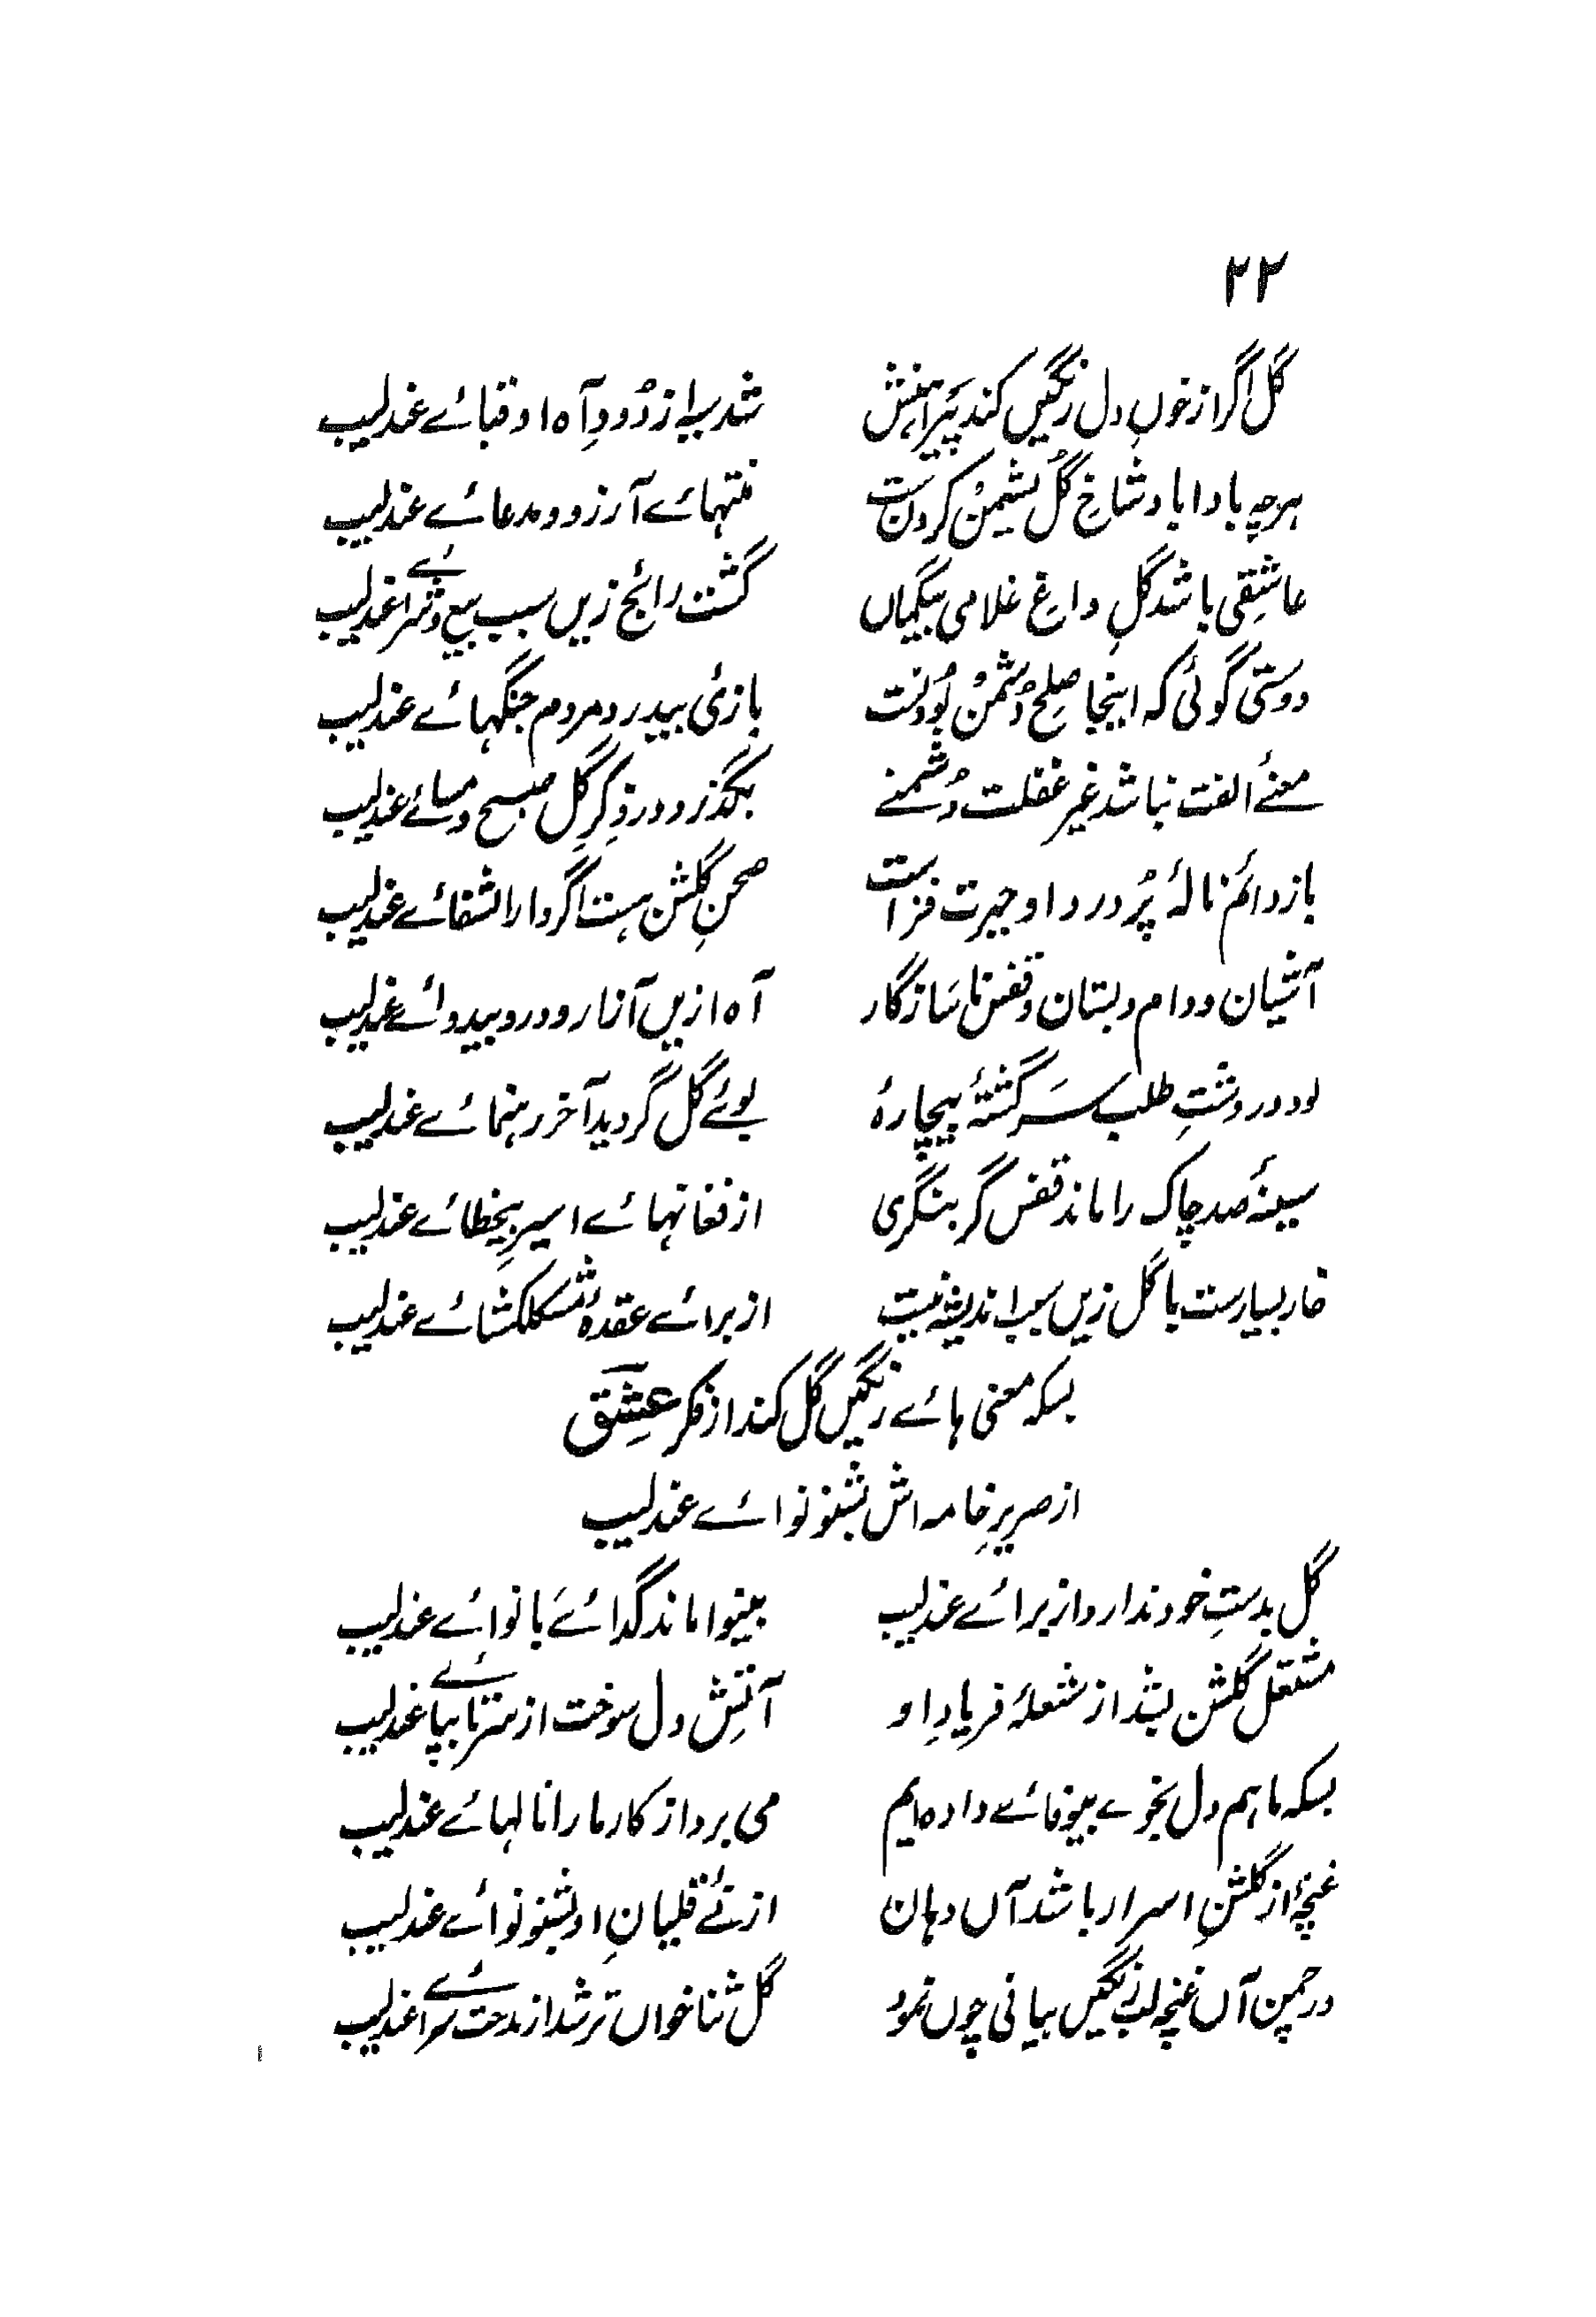 ۲۲
گل اگر از خونِ دل رنگیں کند پیراہنش شد سیہ از دُودِ آہ او قبائے عندلیب
ہرچہ بادا باد شاخِ گُل نشیمن کردنست منتہائے آرزو و مدعائے عندلیب
عاشِقی باشد گلِ داغِ غلامی بیگماں گشت رائج زیں سبب بیع و شرائے عندلیب
دوستی گوئی کہ اینجا صلحِ دُشمن بُودنت بازیٔ بیدرد مردم جنگہائے عندلیب
معنئ الفت نباشد غیر غفلت دُشمنے بگذرد در ذِکرِ گل صبح و مسائے عندلیب
باز دائم نالۂ پُر درد او حیرت فزاست صحنِ گلشن ہست اگر دارالشفائے عندلیب
آشیان و دام و بستان و قفس ناسازگار آہ ازیں آزار و درد بیدوائے عندلیب
بود در دشتِ طلب سَرگشتۂ بیچارۂ بوئے گل گردید آخر رہنمائے عندلیب
سینۂ صد چاک را ماند قفس گر بنگری از فغانہائے اسیرِ بیخطائے عندلیب
خار بسیارست با گل زیں سبب اندیشہ نیست از برائے عقدۂ مُشکلکشائے عندلیب
بسکہ معنی ہائے رنگیں گل کند از فکر عِشق
از صریرِ خامہ اش بشنو نوائے عندلیب
گل بدستِ خود ندارد از برائے عندلیب بینوا ماند گدائے بانوائے عندلیب
مشتعل گلشن بشد از شعلۂ فریادِ او آتِشِ دل سوخت از سر تا بپائے عندلیب
بسکہ ما ہم دل بخوے بیوفائے دادہ ایم می برد از کار ما را نالہائے عندلیب
غنچۂ از گلشنِ اسرار باشد آں دہان از نئے قلیانِ او بشنو نوائے عندلیب
در چمن آں غنچہ لب رنگیں بیانی چوں نمود گل ثنا خواں تر شد از مدحت سرائے عندلیب